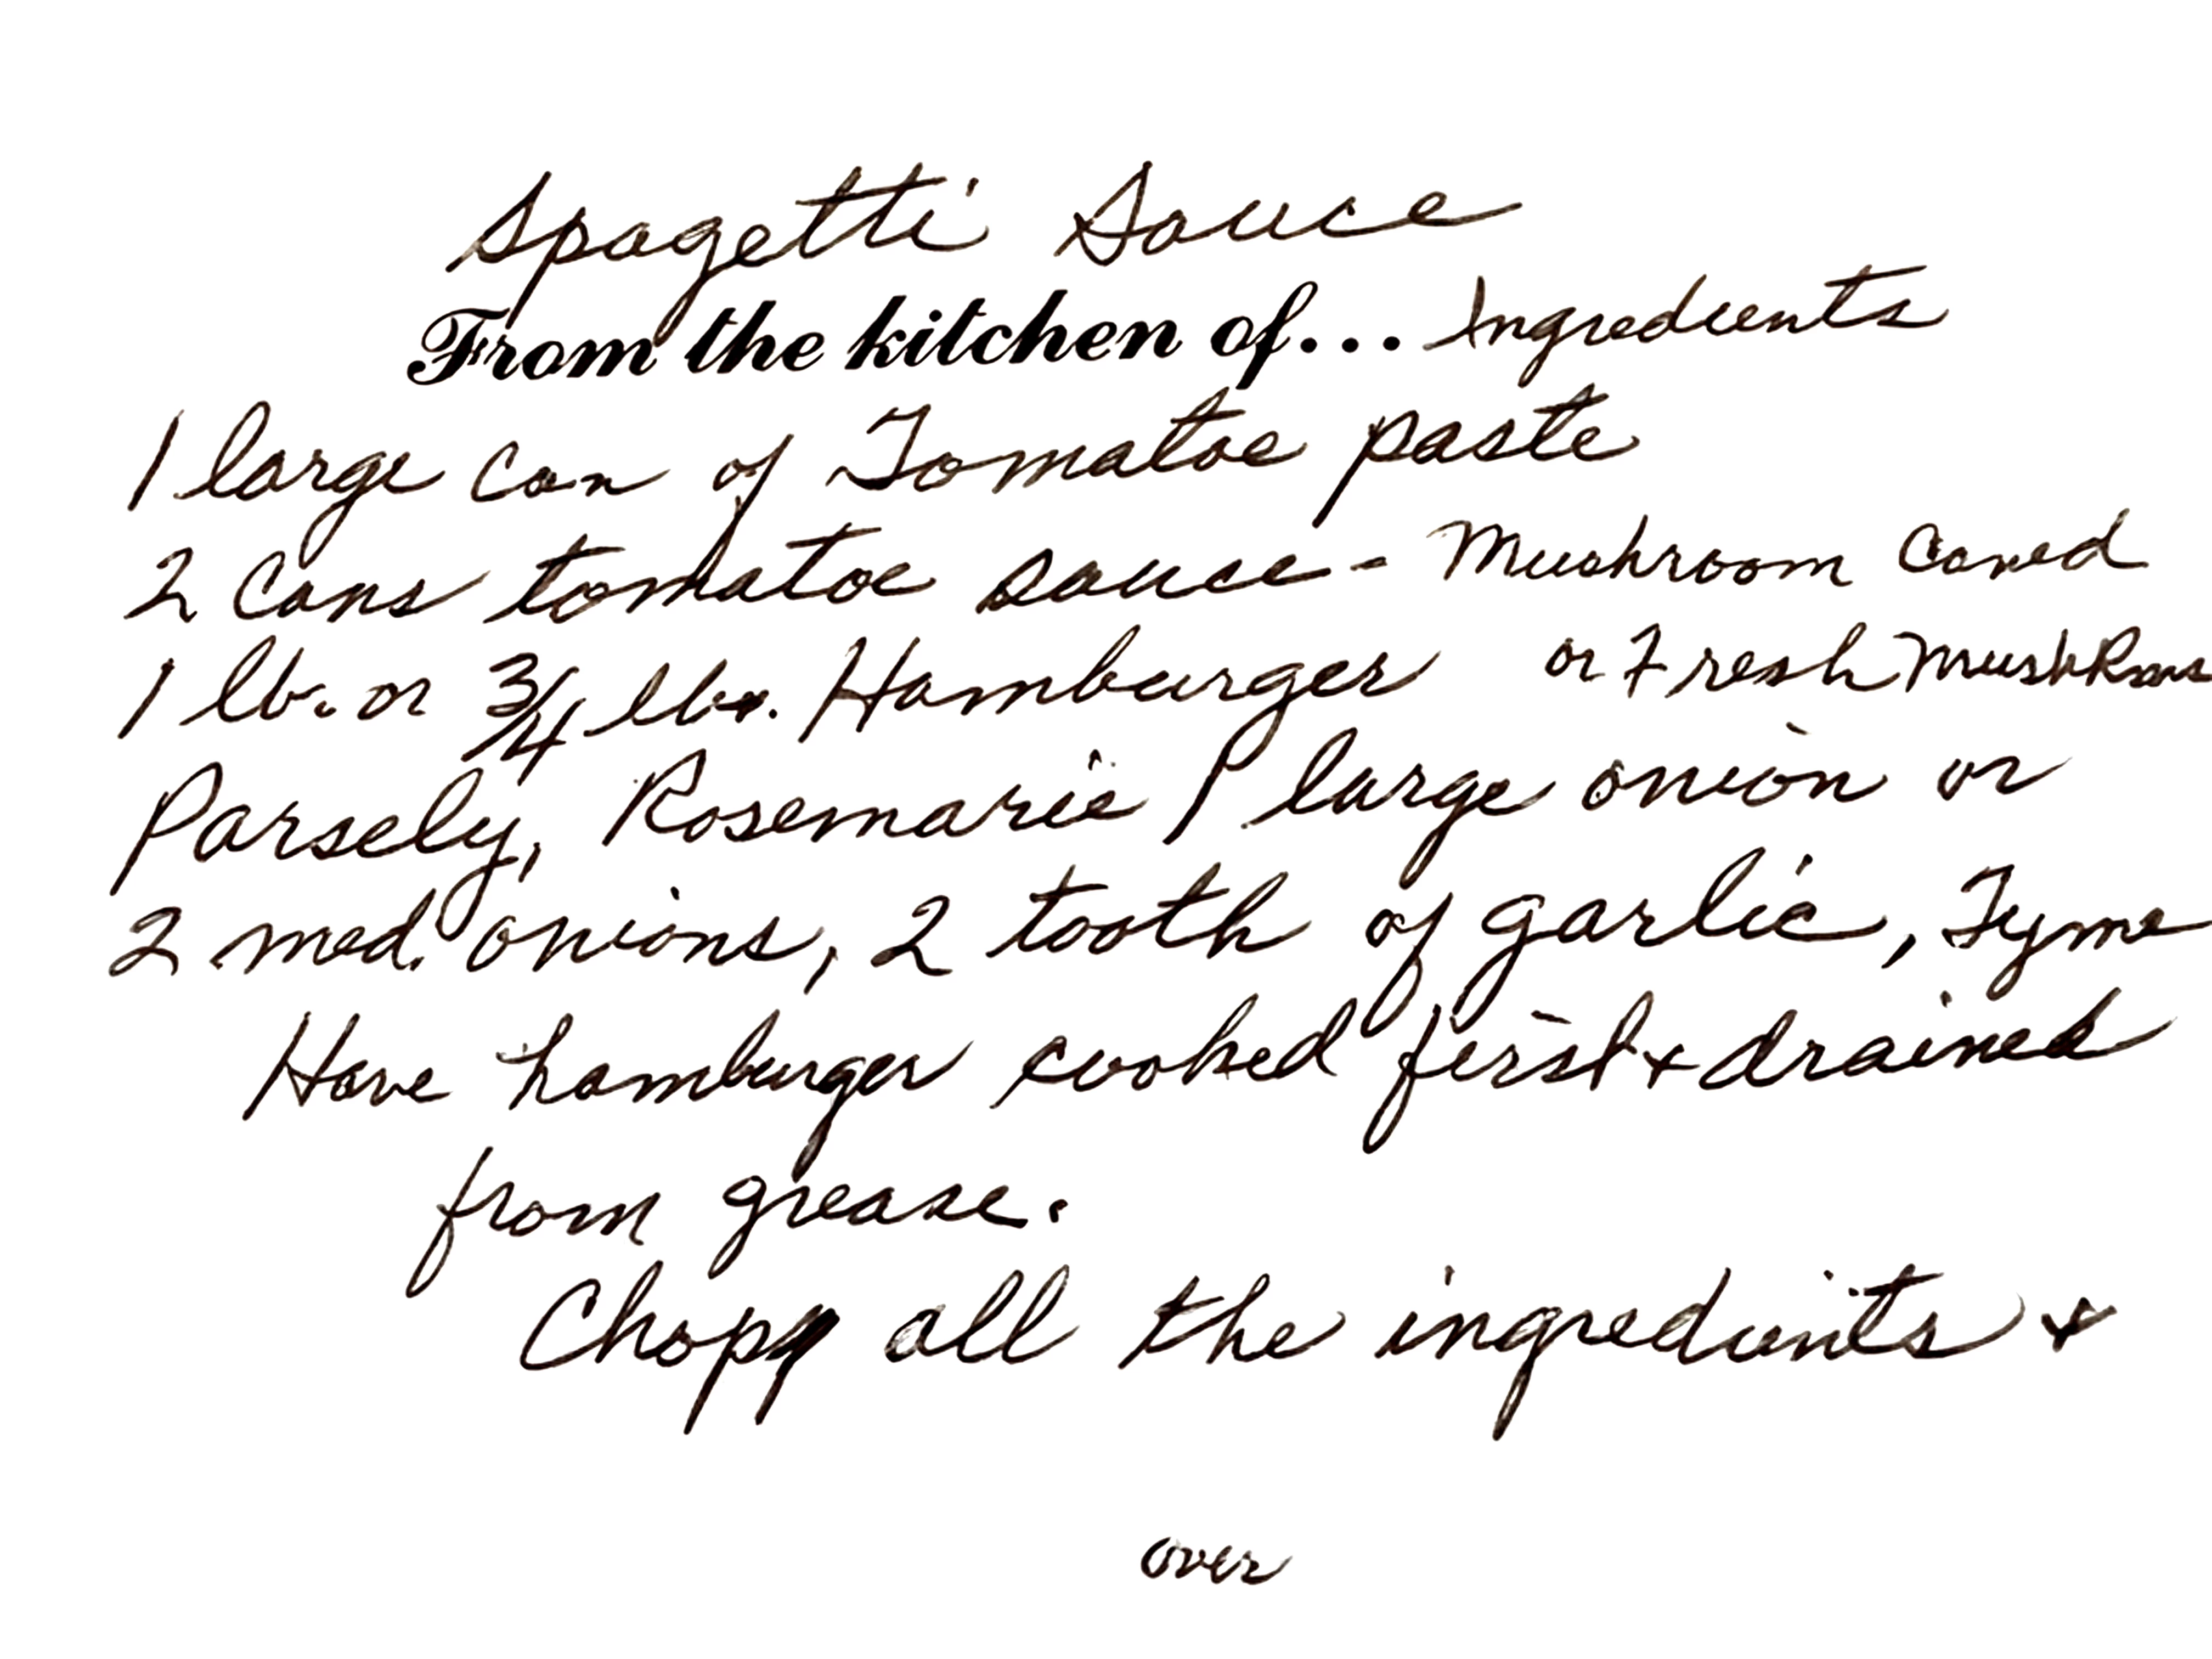 Spagetti Sauce
From the kitchen of... Ingredients
1 large can of Tomatoe paste
2 Cans tomatoe sauce - Mushroom Caned
1 lb. or 3/4 lbs. Hamburger or Fresh
Parsely, Rosemarie 1 large onion or
2 med. onions, 2 tooth of garlic, Tyme
Have hamburger cooked first & drained
from grease.
Chopp all the ingredients &
over